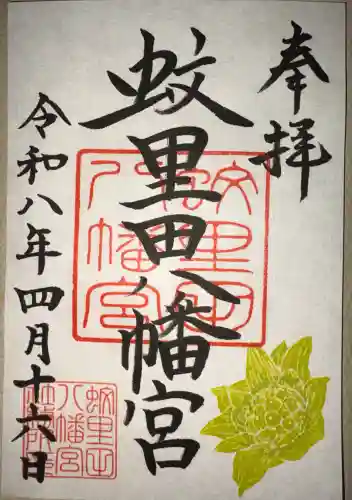 奉拝
蚊里田八幡宮
令和八年四月十六日
蚊里田
八幡宮
蚊里田
八幡宮